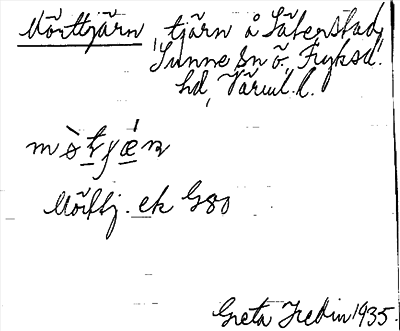 Mörttjärn, tjärn å Säterstad,
Sunne sn ö. Fryksd.
hd, Värml. l.
mö̀tjǽn
Mörttj. ek G80
Greta Hedin 1935.